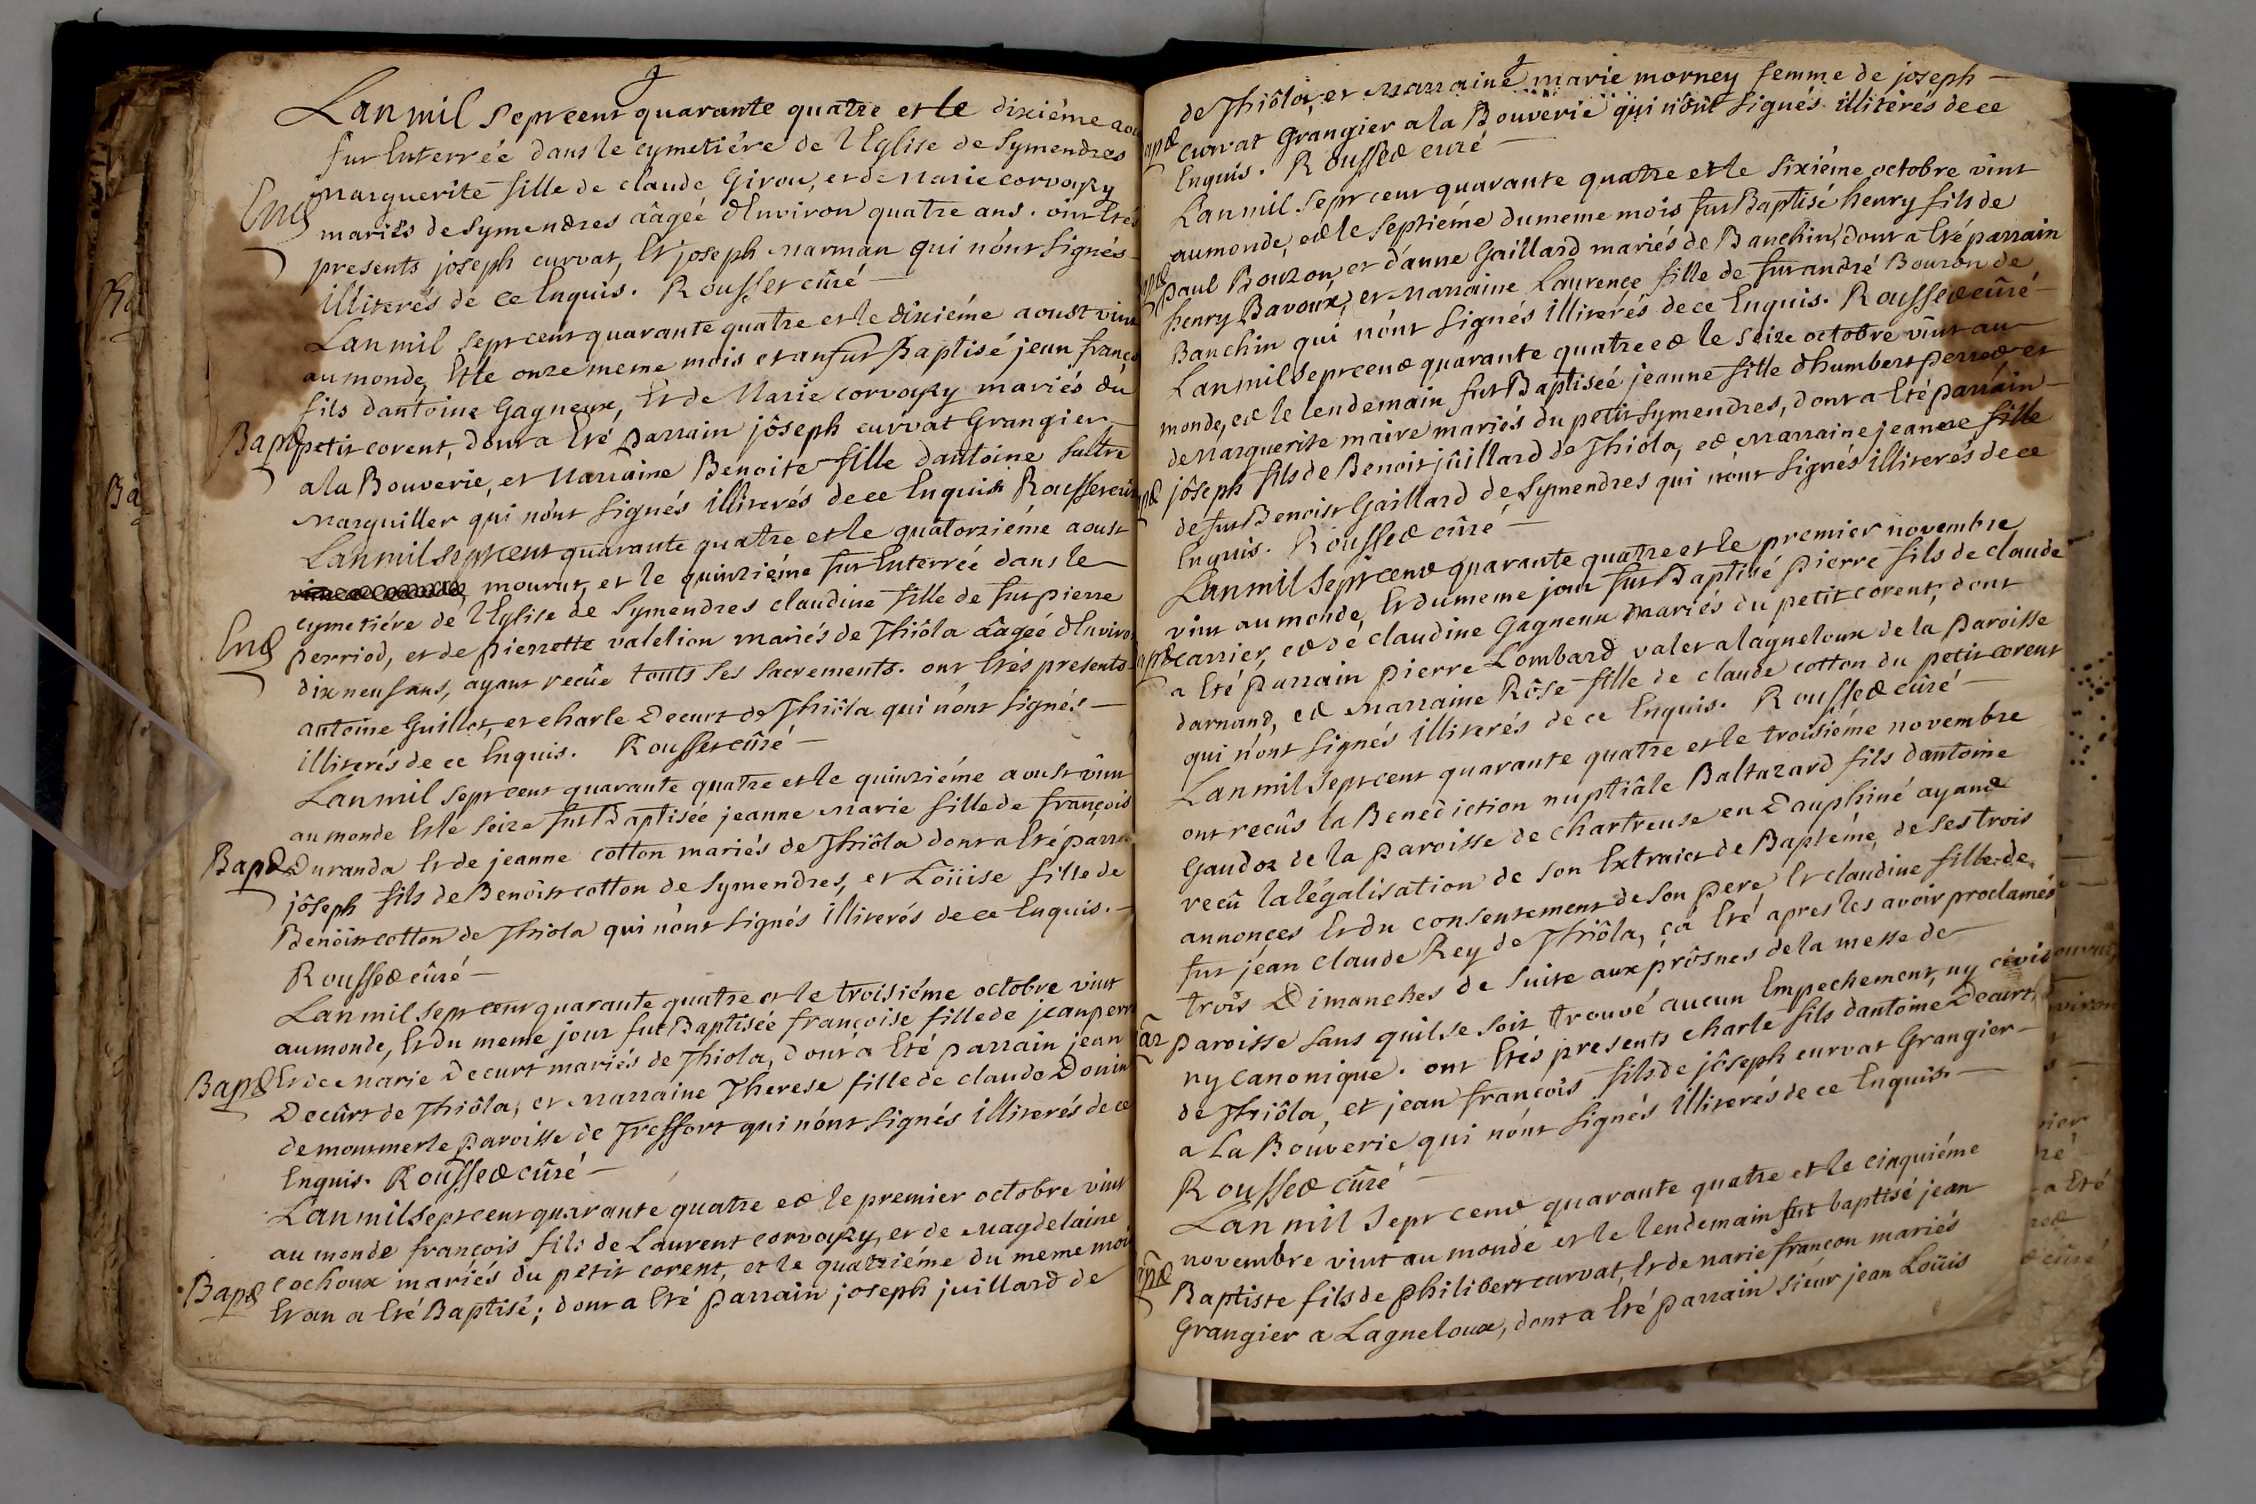 Lanmil septcent quarante quatre et le dixiéme aou
fut Enterrée dans le cymetiére de l'Eglise de Symendres
Ent
marguerite fille de claude Girou, et de Marie corvoyzy
mariés de Symendres aâgeé d'Environ quatre ans. ont Etés
presents joseph curvat, Et joseph Marman qui nónt Signés
illiterés de ce Enquis. Rousset cûré
Lanmil septcent quarante quatre et le dixiéme aoust vint
au monde, Et le onze meme mois et an fut Baptisé jean franço
fils dantoine Gagneux, Et de Marie corvoyzy mariés du
Bapt petit corent, dont a Eté parrain jôseph curvat Grangier
a la Bouverie, et Marraine Benoite fille dantoine sultre
Marguiller qui nónt signés illiterés de ce Enquis Rousset cûré
Lanmil septcent quarante quatre et le quatorziéme aoust
mourut, et le quinziéme fut Enterrée dans le
cymetiére de l'Eglise de Symendres claudine fille de fut pierre
Ent perriod, et de pierrette valelion mariés de Thiôla aâgeé dEnviro
dix neuf ans, ayant recûe touts ses sacrements. ont Etés presents
antoine Guillot, et charle Decurt de Thiôla qui nónt signés
illiterés de ce Enquis. Rousset cûré
Lanmil septcent quarante quatre et le quinziéme aoust vint
au monde Et le seize fut Baptisée jeanne Marie fille de françois
Bapt Duranda Et de jeanne cotton mariés de Thiôla dont a Eté parra
jôseph fils de Benôist cotton de Symendres, et Loüise fille de
Benôist cotton de Thiola qui nónt signés illiterés de ce Enquis.
Rousset cûré
Lanmil septcent quarante quatre et le troisiéme octobre vint
au monde, Et du meme jour fut Baptisée françoise fille de jean perr
Bapt Et de Marie Decurt mariés de Thiola, dont a Eté parrain jean
Decûrt de Thiôla, et Marraine Therese fille de claude Donin
de mounmerle paroisse de Treffort qui nónt signés illiterés de ce
Enquis. Rousset cûré
Lanmil septcent quarante quatre et le premier octobre vint
au monde françois fils de Laurent corvoyzy, et de Magdelaine
cochoux mariés du petit corent, et le quatriéme du meme moi
Bapt Et an a Eté Baptisé; dont a Eté parrain joseph juillard de
de Thiôla, et Marraine marie morney femme de joseph
apt curvat Grangier a la Bouverie qui nónt signés illiterés de ce
Enquis. Rousset curé
Lanmil septcent quarante quatre et le sixiéme octobre vint
au monde, et le septiéme du meme mois fut Baptisé henry fils de
apt paul Bouzon et d'anne Gaillard mariés de Banchin, dont a Eté parrain
henry Bavoux, et Marraine Laurençe fille de fut andré Bouzon de
Banchin qui nónt signés illiterés de ce Enquis. Rousset cûré
Lanmil septcent quarante quatre et le seize octobre vint au
monde, et le lendemain fut Baptiseé jeanne fille d'humbert perret et
de Marguerite maire mariés du petit symendres, dont a Eté parrain
apt jôseph fils de Benoit jûillard de Thiola, et Marraine jeanne fille
de fut Benoist Gaillard de Symendres qui nónt signés illiterés de ce
Enquis. Rousset cûré
Lanmil septcent quarante quatre et le premier novembre
vint au monde, Et du meme jour fut Baptisé pierre fils de claude
apt carrier, et de claudine Gagneux mariés du petit corent, dont
a Eté parrain pierre Lombard valet alagneloux de la paroisse
darnand, et Marraine Rôse fille de claude cotton du petit corent
qui nónt signés illiterés de ce Enquis. Rousset cûré
Lanmil septcent quarante quatre et le troisiéme novembre
ont recûs la Benediction nuptiâle Baltazard fils dantoine
Gaudoz de la paroisse de chartreuse en Dauphiné ayant
recû la légalisation de son Extraict de Baptéme, de ses trois
annonces Et du consentement de son pere, Et claudine fille de
fut jean claude Rey de Thiôla, ça Eté apres les avoir proclamés
trois Dimanches de suite aux prôsnes de la messe de
ar paroisse sans quil se soit trouvé aucun Empechement, ny civil
ny canonique. ont Etés presents charle fils dantoine Decurt
de Thiôla, et jean françois fils de jôseph curvat Grangier
a La Bouverie qui nónt signés illiterés de ce Enquis.
Rousset cûré
Lanmil septcent quarante quatre et le cinquiéme
novembre vint au monde et le lendemain fut baptisé jean
apt Baptiste fils de philibert curvat, Et de marie françon mariés
Grangier a Lagneloux, dont a Eté parrain sieur jean Loüis